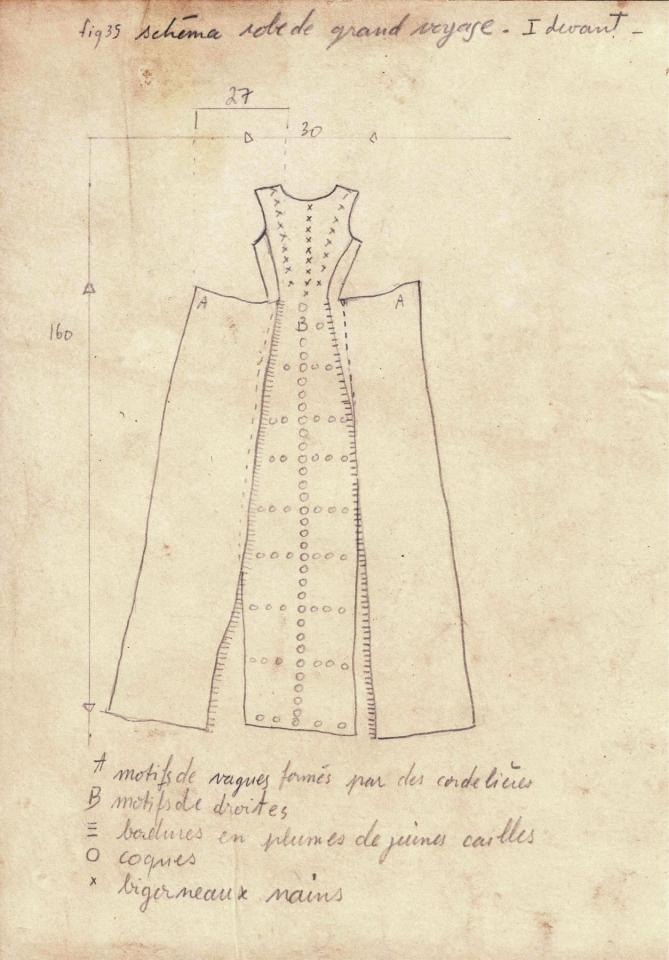 fig 35 schéma robe de grand voyage. I devant -
27
30
160
A
A
B
A motifs de vagues formés par des cordelières
B motifs de droites
bordures en plumes de jeunes cailles
O coques
x bigerneaux nains